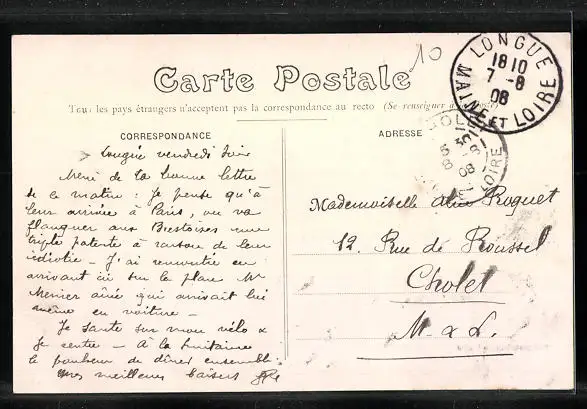 Carte Postale
Tous les pays étrangers n'acceptent pas la correspondance au recto (Se renseigner à la poste)
CORRESPONDANCE
ADRESSE
10
LONGUE
18 10
7 -8
08
MAINE ET LOIRE
CHOLET
8 -8
08
LOIRE
Longué vendredi soir
Merci de la bonne lettre
de ce matin : Je pense qu'à
leur arrivée à Paris, on va
flanquer aux Brestoises une
triple patente à raison de leur
idiotie - J'ai rencontré en
arrivant ici sur la place Mr
Mercier aîné qui arrivait lui
même en voiture -
Je saute sur mon vélo &
je rentre - A la huitaine
le bonheur de dîner ensemble
mes meilleurs baisers
Mademoiselle Alice Roguet
12, Rue de Roussel
Cholet
M. & L.